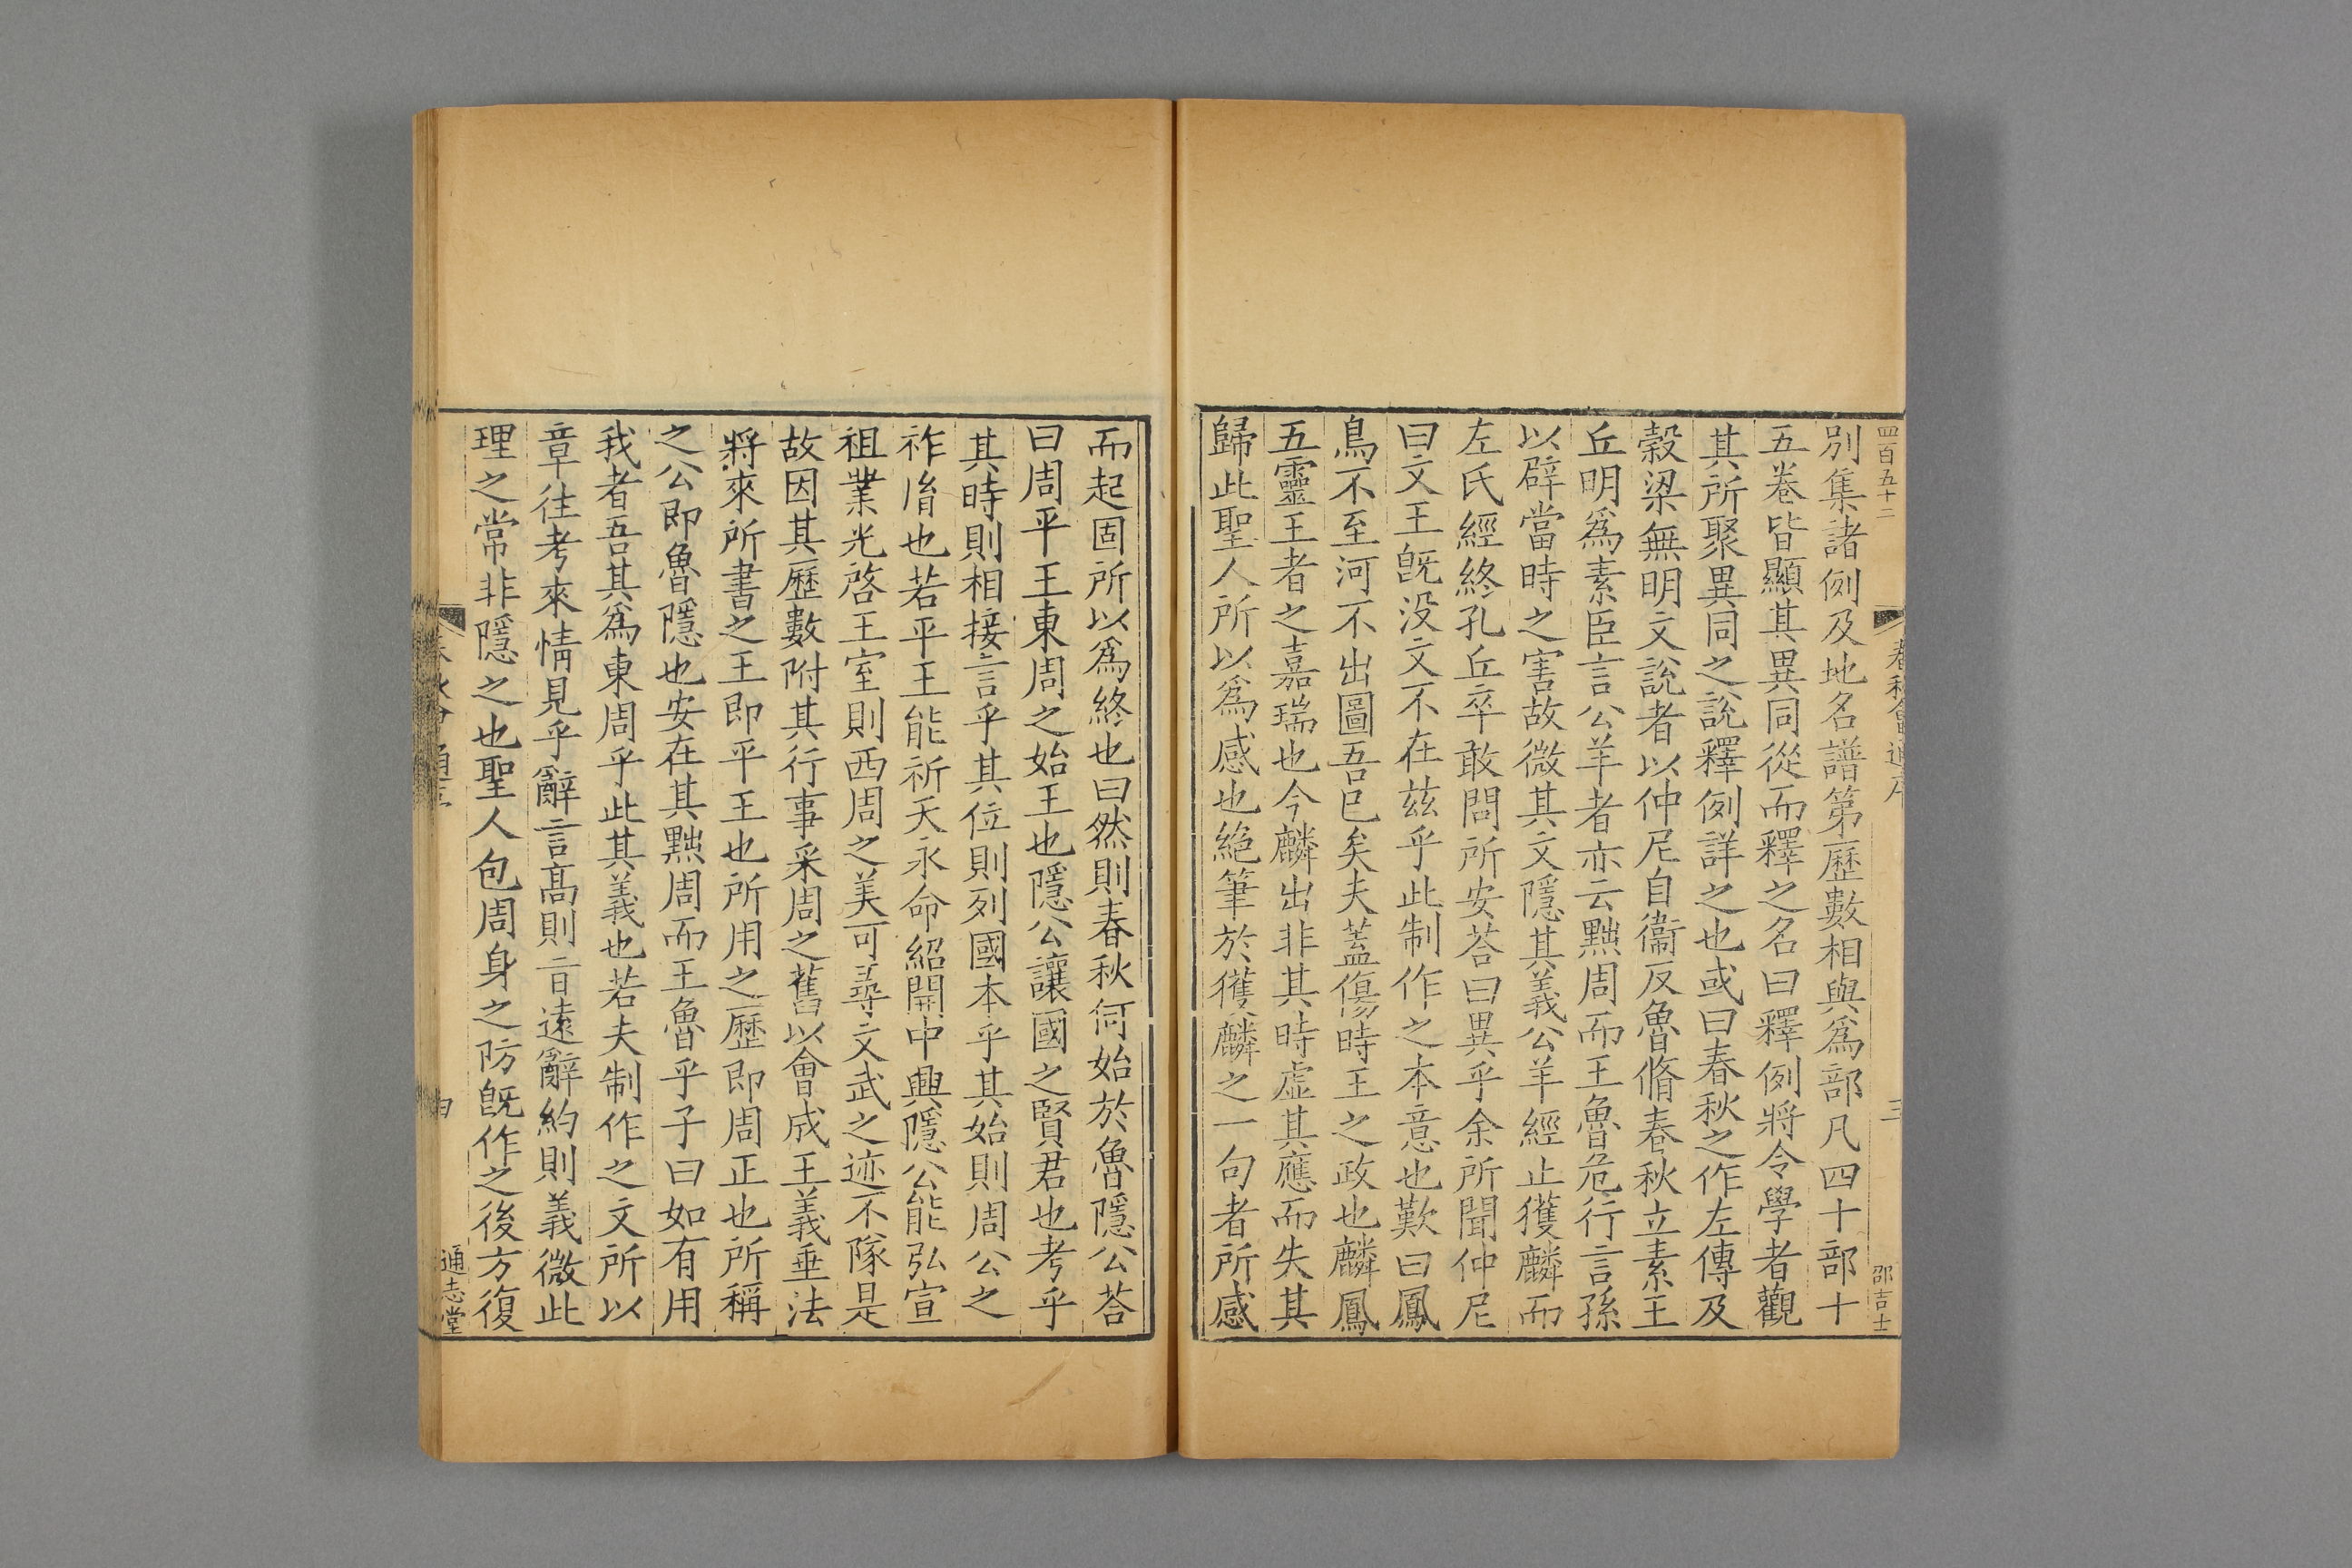 四百五十二
春秋會通序
三
邵吉士
別集諸例及地名譜第歷數相與爲部凡四十部十
五卷皆顯其異同從而釋之名曰釋例將令學者觀
其所聚異同之說釋例詳之也或曰春秋之作左傳及
穀梁無明文說者以仲尼自衞反魯脩春秋立素王
丘明爲素臣言公羊者亦云黜周而王魯危行言孫
以辟當時之害故微其文隱其義公羊經止獲麟而
左氏經終孔丘卒敢問所安荅曰異乎余所聞仲尼
曰文王旣没文不在兹乎此制作之本意也歎曰鳳
鳥不至河不出圖吾已矣夫蓋傷時王之政也麟鳳
五靈王者之嘉瑞也今麟出非其時虛其應而失其
歸此聖人所以爲感也絶筆於獲麟之一句者所感
而起固所以爲終也曰然則春秋何始於魯隱公荅
曰周平王東周之始王也隱公讓國之賢君也考乎
其時則相接言乎其位則列國本乎其始則周公之
祚胤也若平王能祈天永命紹開中興隱公能弘宣
祖業光啓王室則西周之美可尋文武之迹不隊是
故因其歷數附其行事采周之舊以會成王義垂法
將來所書之王即平王也所用之歷即周正也所稱
之公即魯隱也安在其黜周而王魯乎子曰如有用
我者吾其爲東周乎此其義也若夫制作之文所以
章往考來情見乎辭言髙則旨遠辭約則義微此
理之常非隱之也聖人包周身之防旣作之後方復
通志堂